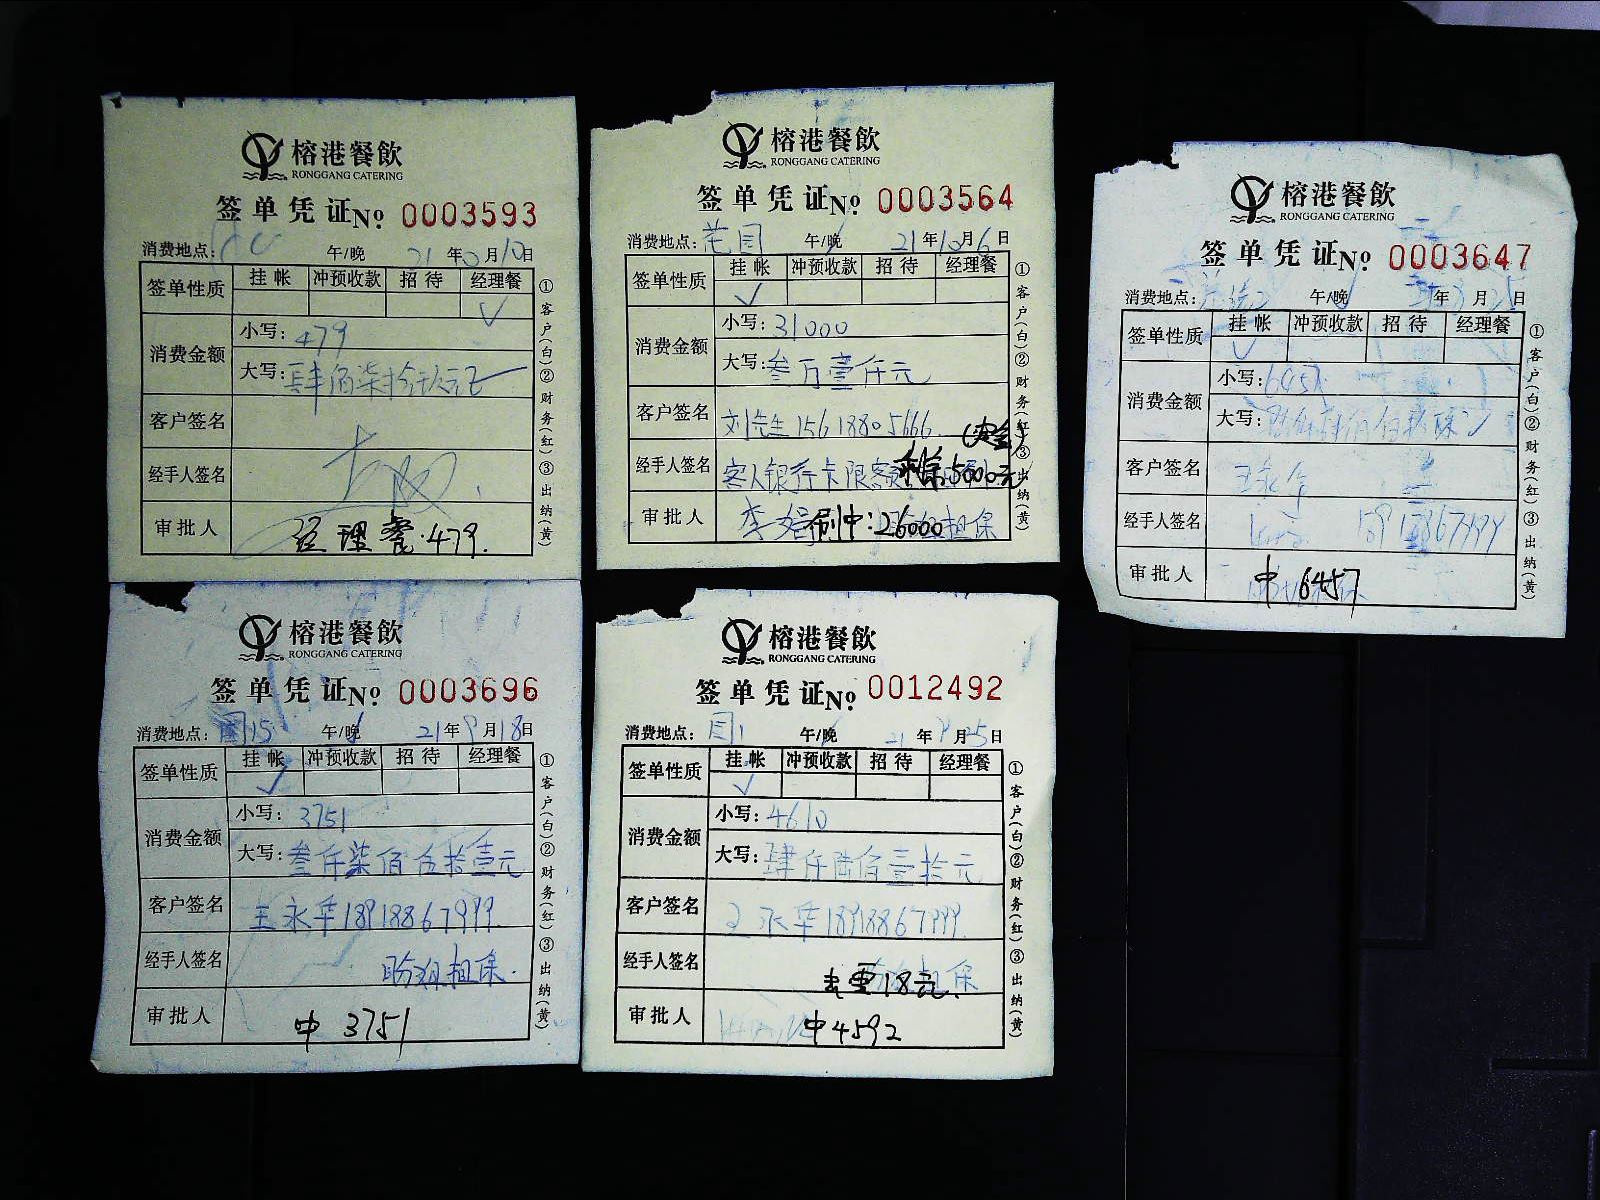 榕港餐飲
RONGGANG CATERING
签单凭证№ 0003593
消费地点: 午/晚 21年10月10日
签单性质 挂帐 冲预收款 招待 经理餐
√
消费金额 小写: 479
大写: 肆佰柒拾玖元正
客户签名
经手人签名
审批人 经理餐.479.
①客户(白)②财务(红)③出纳(黄)
榕港餐飲
RONGGANG CATERING
签单凭证№ 0003564
消费地点: 花园 午/晚 21年10月6日
签单性质 挂帐 冲预收款 招待 经理餐
√
消费金额 小写: 31000
大写: 叁万壹仟元
客户签名 刘先生 15618805666.
(定金)
经手人签名 客人银行卡限额 剩余:5000元
审批人 李 刷中:26000 担保
①客户(白)②财务(红)③出纳(黄)
榕港餐飲
RONGGANG CATERING
签单凭证№ 0003647
消费地点: 午/晚 年 月25日
签单性质 挂帐 冲预收款 招待 经理餐
√
消费金额 小写: 6457
大写:
客户签名 王永华
经手人签名
审批人 中 6457
①客户(白)②财务(红)③出纳(黄)
榕港餐飲
RONGGANG CATERING
签单凭证№ 0003696
消费地点: 园15 午/晚 21年9月18日
签单性质 挂帐 冲预收款 招待 经理餐
√
消费金额 小写: 3751
大写: 叁仟柒佰伍拾壹元
客户签名 王永华18918867999.
经手人签名 担保.
审批人 中 3751
①客户(白)②财务(红)③出纳(黄)
榕港餐飲
RONGGANG CATERING
签单凭证№ 0012492
消费地点: 园1 午/晚 21年9月25日
签单性质 挂帐 冲预收款 招待 经理餐
√
消费金额 小写: 4610
大写: 肆仟陆佰壹拾元
客户签名 王永华18918867999.
经手人签名 去零18元. 担保
审批人 中4592
①客户(白)②财务(红)③出纳(黄)